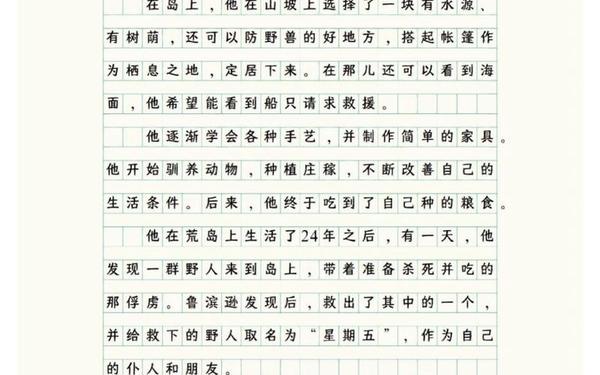 在岛上，他在山坡上选择了一块有水源、
有树荫，还可以防野兽的好地方，搭起帐篷作
为栖息之地，定居下来。在那儿还可以看到海
面，他希望能看到船只请求救援。
他逐渐学会各种手艺，并制作简单的家具。
他开始驯养动物，种植庄稼，不断改善自己的
生活条件。后来，他终于吃到了自己种的粮食。
他在荒岛上生活了24年之后，有一天，他
发现一群野人来到岛上，带着准备杀死并吃的
那俘虏。鲁滨逊发现后，救出了其中的一个，
并给救下的野人取名为“星期五”，作为自己
的仆人和朋友。